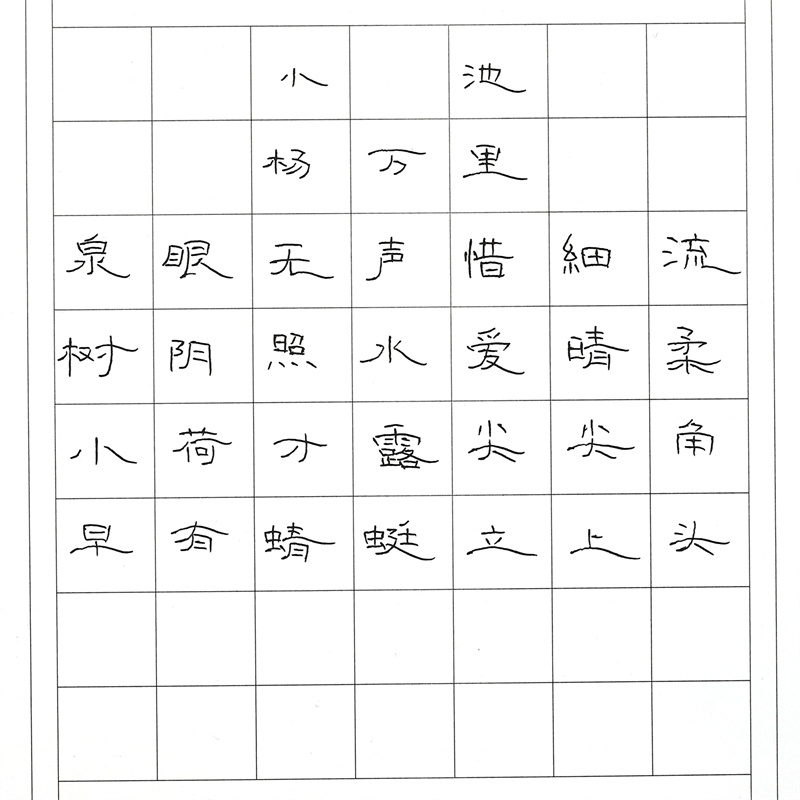 小池
杨万里
泉眼无声惜細流
树阴照水爱晴柔
小荷才露尖尖角
早有蜻蜓立上头